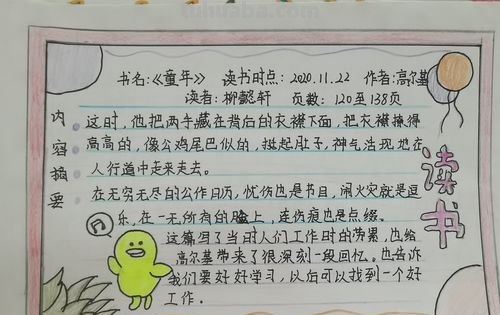 tuhuaba.com
书名:《童年》 读书时点: 2020.11.22 作者:高尔基
读者:柳懿轩 页数: 120至138页
内容摘要
这时,他把两手藏在背后的衣襟下面,把衣襟撩得
高高的,像公鸡尾巴似的,挺起肚子,神气活现地在
人行道中走来走去。
在无穷无尽的公作日历,忧伤也是节日,闹火灾就是逗
乐,在一无所有的脸上,连伤痕也是点缀。
这篇写了当时人们工作时的劳累,也给
高尔基带来了很深刻一段回忆。也告诉
我们要好好学习,以后可以找到一个好
工作.
读书